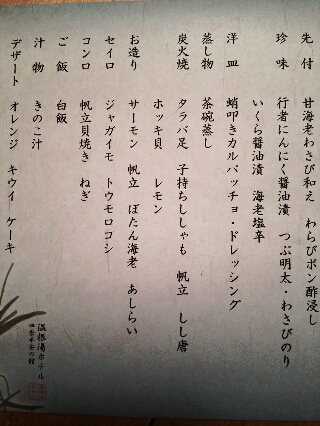 先付 甘海老わさび和え わらびポン酢浸し
珍味 行者にんにく醤油漬 つぶ明太・わさびのり
いくら醤油漬 海老塩辛
洋皿 蛸叩きカルパッチョ・ドレッシング
蒸し物 茶碗蒸し
炭火焼 タラバ足 子持ちししゃも 帆立 しし唐
ホッキ貝 レモン
お造り サーモン 帆立 ぼたん海老 あしらい
セイロ ジャガイモ トウモロコシ
コンロ 帆立貝焼き ねぎ
ご飯 白飯
汁物 きのこ汁
デザート オレンジ キウイ ケーキ
温根湯ホテル
四季平安の館